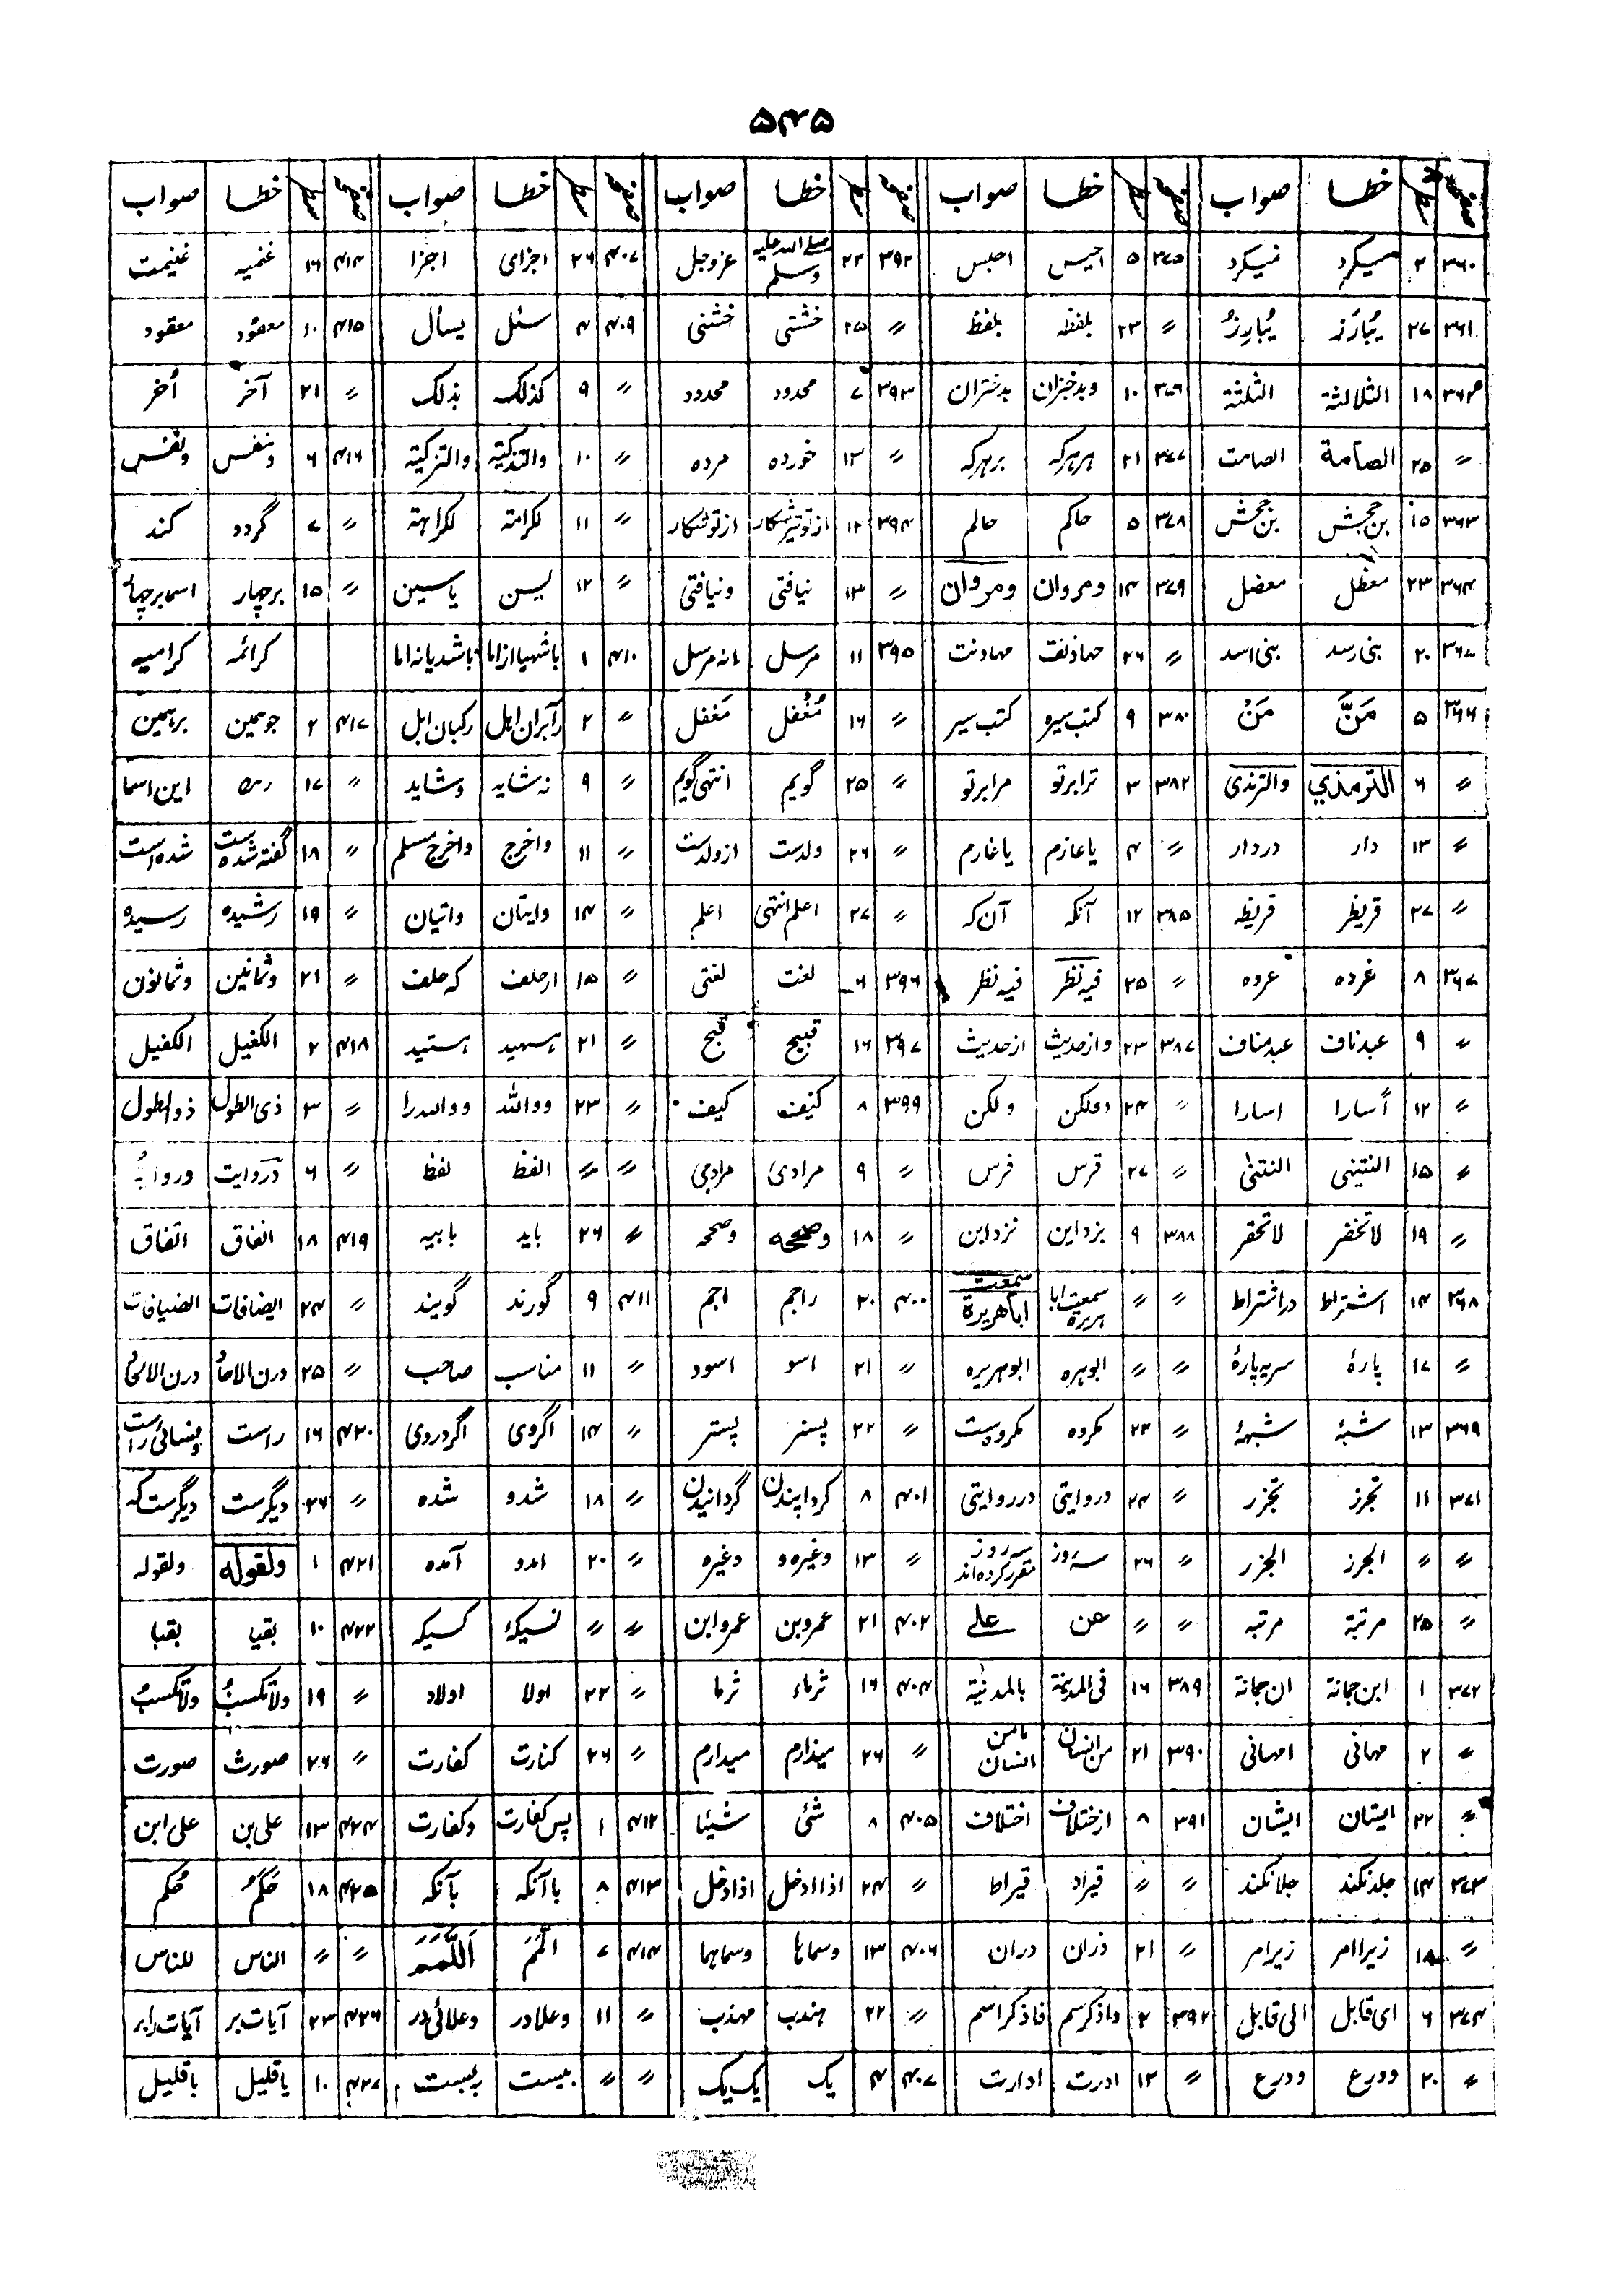 ۵۴۵
صفحه سطر خطا صواب صفحه سطر خطا صواب صفحه سطر خطا صواب صفحه سطر خطا صواب
۳۶۰ ۲ میکرد نمیکرد ۳۷۵ ۵ احیس احبس ۳۹۲ ۲۲ صلی الله علیه وسلم عزوجل ۴۰۷ ۲۶ اجزای اجزا ۴۱۴ ۱۶ غنمیه غنیمت
۳۶۱ ۲۷ یُبارَز یُبارِزُ 〃 ۲۳ بلفظه بلفظ 〃 ۲۵ خشتی خشنی ۴۰۹ ۴ سئل یسأل ۴۱۵ ۱۰ معقود معقود
۳۶۲ ۱۸ الثلالثة الثلثة ۳۷۶ ۱۰ وبدختران بدختران ۳۹۳ ۷ محدود محدود 〃 ۹ کذلک بذلک 〃 ۲۱ آخر اُخر
〃 ۲۵ الصامة الصامت ۳۷۷ ۲۱ هرهرکه برهرکه 〃 ۱۳ خورده مرده 〃 ۱۰ والتذکیة والتزکیة ۴۱۶ ۶ ونفس ونفس
۳۶۳ ۱۵ بن حجش بن جحش ۳۷۸ ۵ حاکم حالم ۳۹۴ ۱۲ ازتوتیرشکار ازتوشکار 〃 ۱۱ لکرامة لکراهة 〃 ۷ گردد کند
۳۶۴ ۲۳ معظل معضل ۳۷۹ ۱۴ ومروان ومروان 〃 ۱۳ نیافتی ونیافتی 〃 ۱۲ یسن یاسین 〃 ۱۵ برچهار
۳۶۷ ۲۰ بنی رسد بنی اسد 〃 ۲۶ مهادنت ۳۹۵ ۱۱ مرسل مانه مرسل ۴۱۰ ۱ باشدیانه اما کرائمه کرامیه
۳۶۶ ۵ مَنَّ مَنْ ۳۸۰ ۹ کتب سیره کتب سیر 〃 ۱۶ مُغْفل مَغفل 〃 ۲ رکبان ابل ۴۱۷ ۲ جوهمین برهمین
〃 ۶ الترمذي والترمذی ۳۸۲ ۳ ترابرتو مرابرتو 〃 ۲۵ گویم انتهی گویم 〃 ۹ نه شاید وشاید 〃 ۱۷ این اسما
〃 ۱۳ دار دردار 〃 ۴ یاعازم یاغارم 〃 ۲۶ ولدست ازولدست 〃 ۱۱ واخرج واخرج مسلم 〃 ۱۸ گفته شده است شده است
〃 ۲۷ قریظر قریظه ۳۸۵ ۱۲ آنکه آن که 〃 ۲۷ اعلم انتهی اعلم 〃 ۱۴ وایتان واتیان 〃 ۱۹ رشیده رسیده
۳۶۷ ۸ غرده عروه 〃 ۲۵ فیه نظر فیه نظر ۳۹۶ ۶ لغت لغتی 〃 ۱۵ ازحلف که حلف 〃 ۲۱ وثمانین وثمانون
〃 ۹ عبدناف عبدمناف ۳۸۷ ۲۳ وازحدیث ازحدیث ۳۹۷ ۱۶ قبیح قبح 〃 ۲۱ هستید ۴۱۸ ۲ الکفیل الکفیل
〃 ۱۲ أسارا اسارا 〃 ۲۴ ولکن ۳۹۹ ۸ کنیف کیف 〃 ۲۳ ووالله ووالله را 〃 ۳ ذی الطول ذوالطول
〃 ۱۵ النتینی النتنی 〃 ۲۷ قرس فرس 〃 ۹ مرادی 〃 〃 الفظ لفظ 〃 ۶ دروایت
〃 ۱۹ لاتخفر لاتحقر ۳۸۸ ۹ بزداین نزداین 〃 ۱۸ وصححه 〃 ۲۶ باید بابیه ۴۱۹ ۱۸ انفاق اتفاق
۳۶۸ ۱۴ اشتراط دراشتراط 〃 〃 سمعت ابا هریرة سمعت اباهریرة ۴۰۰ ۲۰ راجم اجم ۴۱۱ ۹ گورند گویند 〃 ۲۴ الضافات الضیافات
〃 ۱۷ پارهٔ سریه پارهٔ 〃 〃 ابوهره ابوهریره 〃 ۲۱ اسو اسود 〃 ۱۱ مناسب صاحب 〃 ۲۵
۳۶۹ ۱۳ شبهٔ شبههٔ 〃 ۲۳ مکروه مکروهست 〃 ۲۲ پستر 〃 ۱۴ اگروی اگردروی ۴۲۰ ۱۶ راست ونسائی راست
۳۷۱ ۱۱ تجرز تجزر 〃 ۲۴ دروایتی درروایتی ۴۰۱ ۸ گردانیدن 〃 ۱۸ شدو شده 〃 ۲۶ دیگرست دیگرست که
〃 〃 الجرز الجزر 〃 ۲۶ سه روز سه روز مقرر کرده اند 〃 ۱۳ وغیره و وغیره 〃 ۲۰ امدو آمده ۴۲۱ ۱ ولقوله ولقوله
〃 ۲۵ مرتبة مرتبه 〃 〃 عن علی ۴۰۲ ۲۱ عمروبن عمروابن 〃 〃 کسیکه ۴۲۲ ۱۰ بقیا بقبا
۳۷۲ ۱ ابن جمانة ان جمانة ۳۸۹ ۱۶ فی المدینة بالمدینة ۴۰۴ ۱۶ ثرماء ثرما 〃 ۲۲ اولا اولاد 〃 ۱۹ ولاتکسب ولاتکسب
〃 ۲ مهانی امهانی ۳۹۰ ۲۱ من انسان مامن انسان 〃 ۲۶ میذارم میدارم 〃 ۲۶ کنارت کفارت 〃 ۲۶ صورث صورت
〃 ۲۲ ایشان ایشان ۳۹۱ ۸ ازختلاف اختلاف ۴۰۵ ۸ شئ شیئا ۴۱۲ ۱ پس کفارت وکفارت ۴۲۴ ۱۳ علی بن علی ابن
۳۷۳ ۱۴ جلدنکند جلانکند 〃 〃 قیراد قیراط 〃 ۲۴ اذاادخل اذادخل ۴۱۳ ۸ باآنکه بآنکه ۴۲۵ ۱۸ حَکَم حکم
〃 ۱۸ زیراامر زیرامر 〃 ۲۱ ذران دران ۴۰۶ ۱۳ وسماها وسماهما ۴۱۴ ۷ اَللّٰهُمَّ 〃 〃 الناس للناس
۳۷۴ ۶ ای قابل الی قابل ۳۹۲ ۲ واذکراسم فاذکراسم 〃 ۲۲ مهذب 〃 ۱۱ وعلادر وعلائی در ۴۲۶ ۲۳ آیات بر آیات رابر
〃 ۲۰ وورع وورع 〃 ۱۳ ادرت ادارت ۴۰۷ ۴ یک یک یک 〃 〃 بیست ۴۲۷ ۱۰ یاقلیل باقلیل